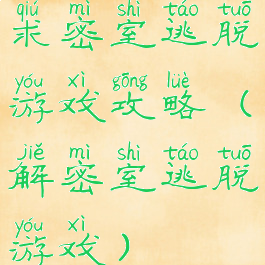 qiú mì shì táo tuō
求密室逃脱
yóu xì gōng lüè
游戏攻略（
jiě mì shì táo tuō
解密室逃脱
yóu xì
游戏）